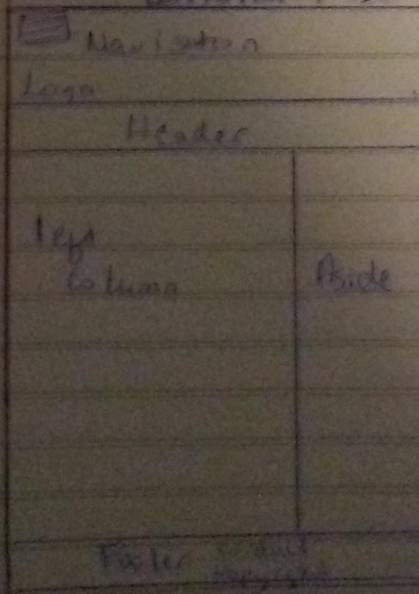 Navigation
Logo
Header
left
Column
Aside
Footer